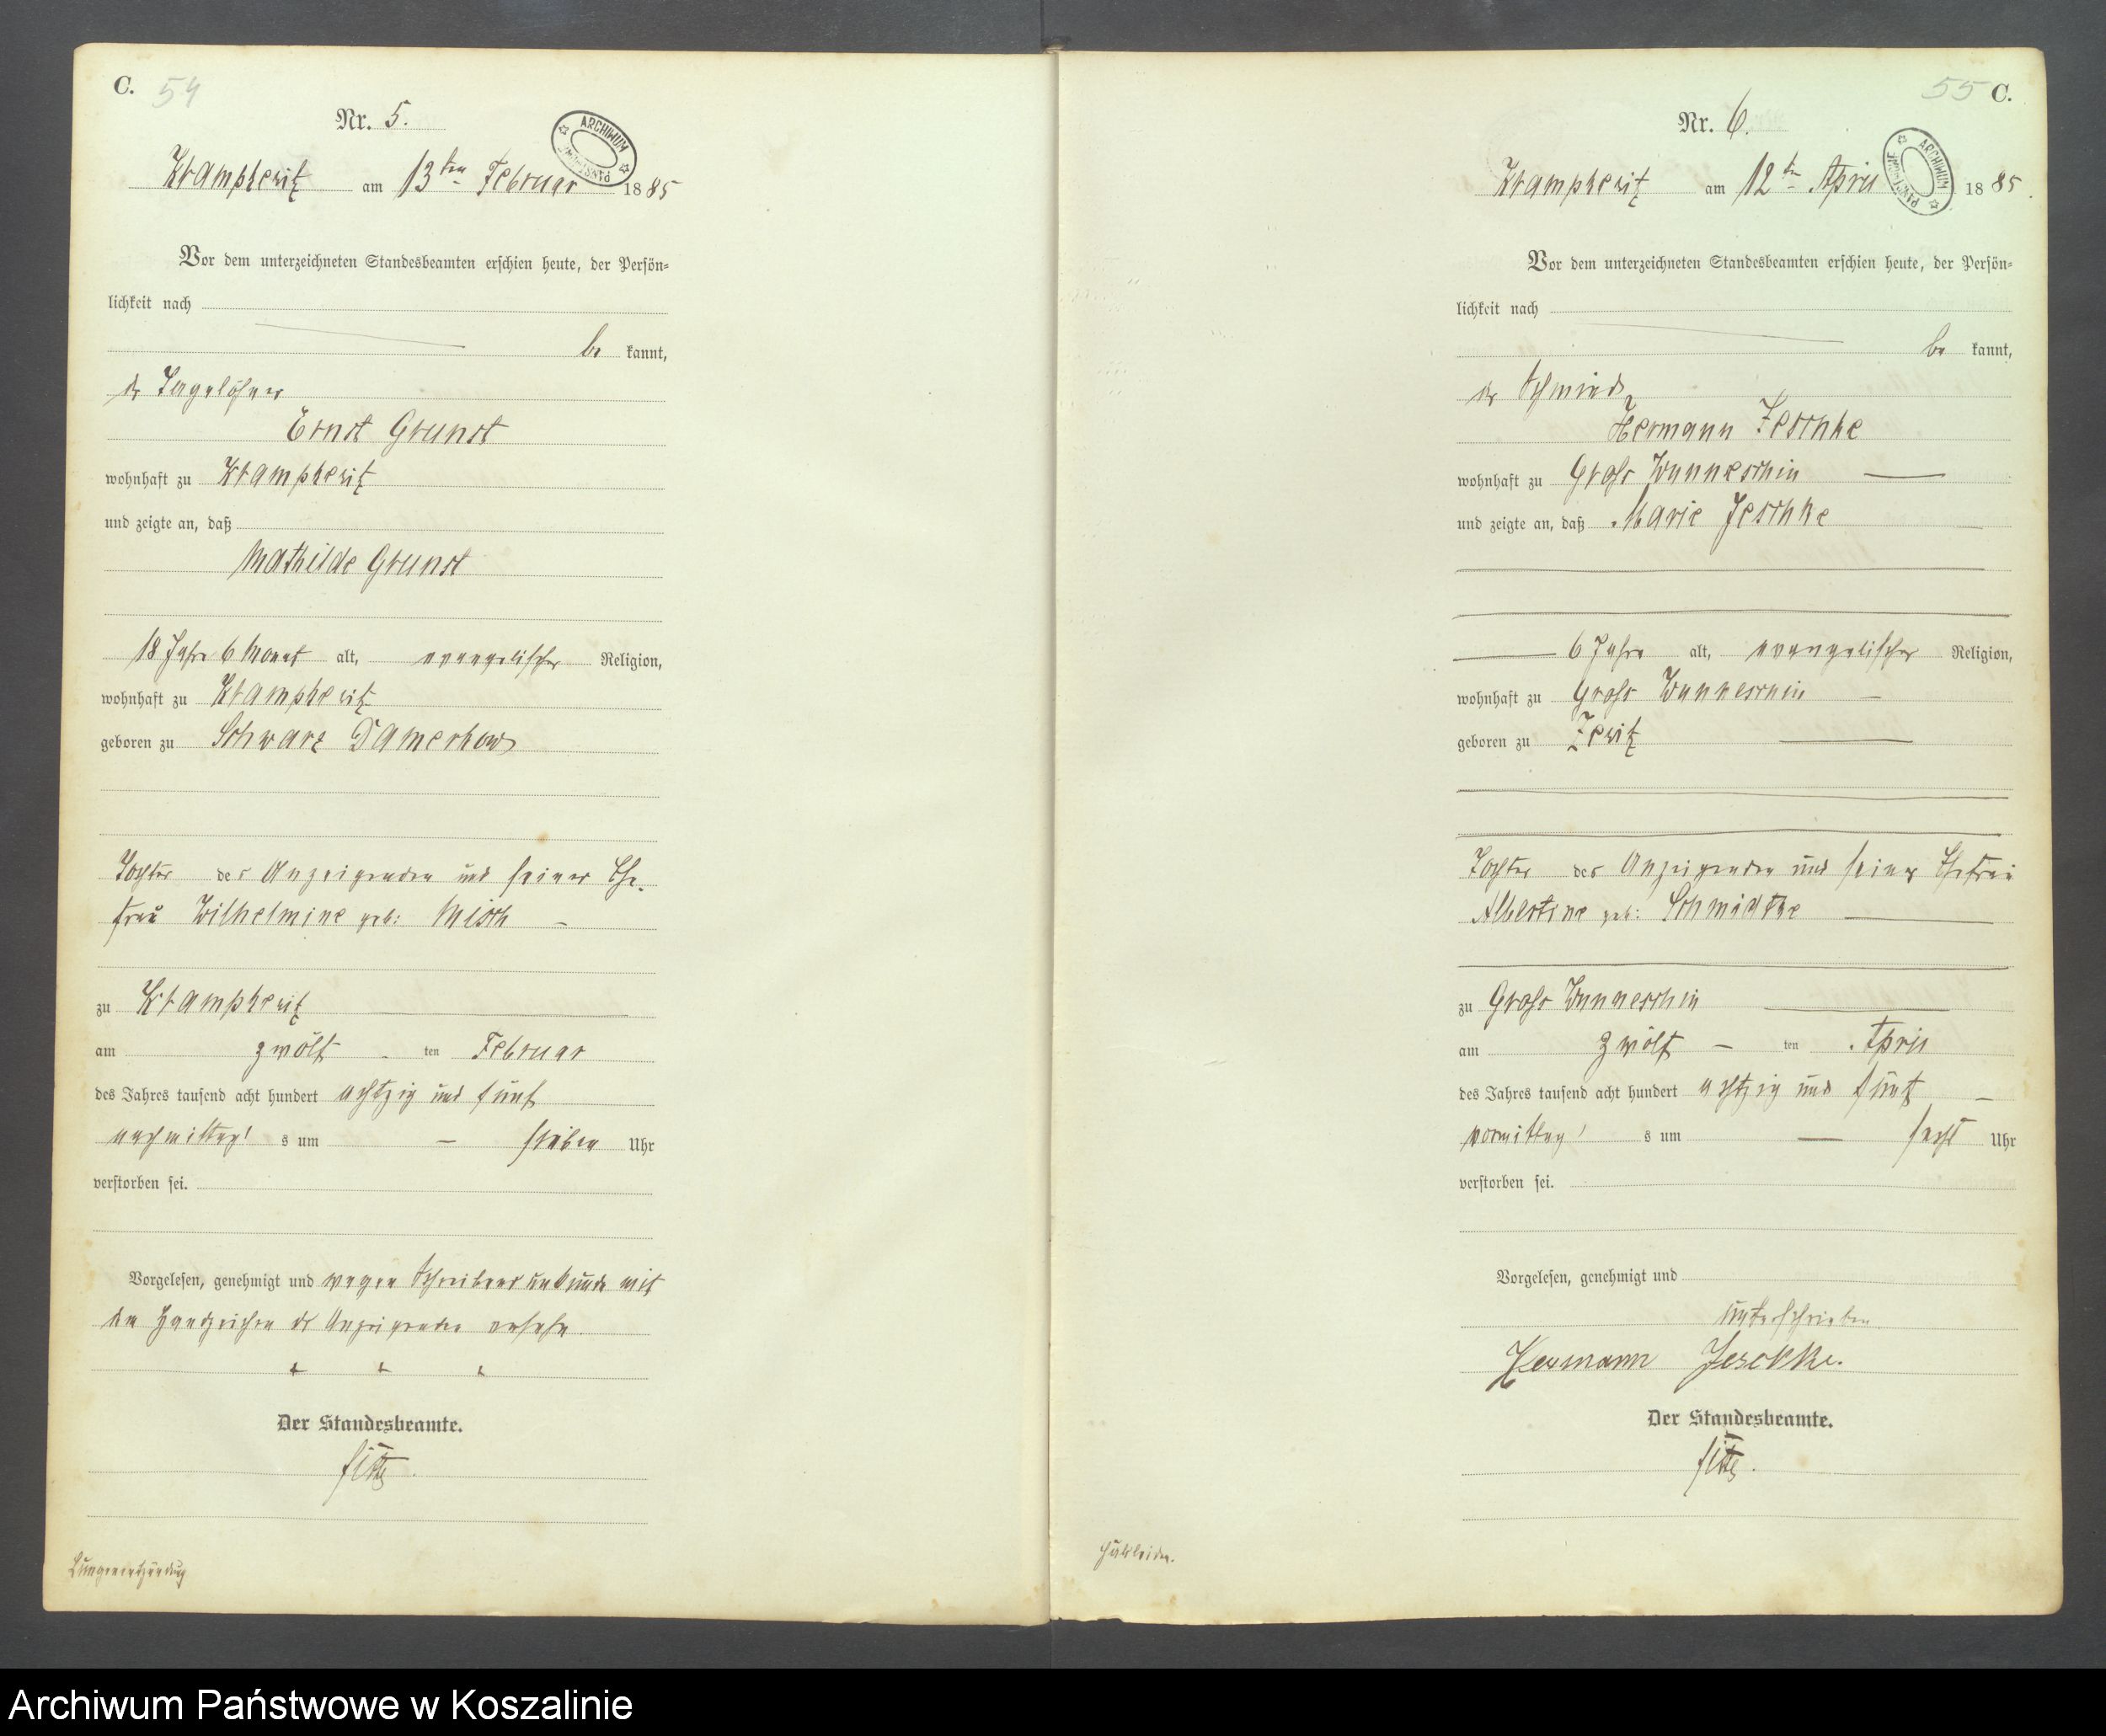 C. 54
Nr. 5.
ARCHIWUM PAŃSTWOWE
Krampkewitz am 13ten Februar 1885
Vor dem unterzeichneten Standesbeamten erschien heute, der Persön=
lichkeit nach
be kannt,
der Tagelöhner
Ernst Grunst
wohnhaft zu Krampkewitz
und zeigte an, daß
Mathilde Grunst
18 Jahre 6 Monat alt, evangelischer Religion,
wohnhaft zu Krampkewitz
geboren zu Schwarz Damerkow
Tochter des Anzeigenden und seiner Ehe-
frau Wilhelmine geb: Misch
zu Krampkewitz
am zwölf ten Februar
des Jahres tausend acht hundert achtzig und fünf
nachmittag's um sieben Uhr
verstorben sei.
Vorgelesen, genehmigt und wegen Schreibensunkunde mit
den Handzeichen des Anzeigenden versehn.
+ + +
Der Standesbeamte.
Lungenentzündung
55 C.
Nr. 6.
ARCHIWUM PAŃSTWOWE
Krampkewitz am 12ten April 1885.
Vor dem unterzeichneten Standesbeamten erschien heute, der Persön=
lichkeit nach
be kannt,
der Schmied
Hermann Jeschke
wohnhaft zu Gross Wunneschin
und zeigte an, daß Marie Jeschke
6 Jahre alt, evangelischer Religion,
wohnhaft zu Gross Wunneschin
geboren zu Zewitz
Tochter des Anzeigenden und seiner Ehefrau
Albertine geb: Schmidtke
zu Gross Wunneschin
am zwölf ten April
des Jahres tausend acht hundert achtzig und fünf
vormittag's um sechs Uhr
verstorben sei.
Vorgelesen, genehmigt und
unterschrieben
Hermann Jeschke.
Der Standesbeamte.
Halsleiden.
Archiwum Państwowe w Koszalinie